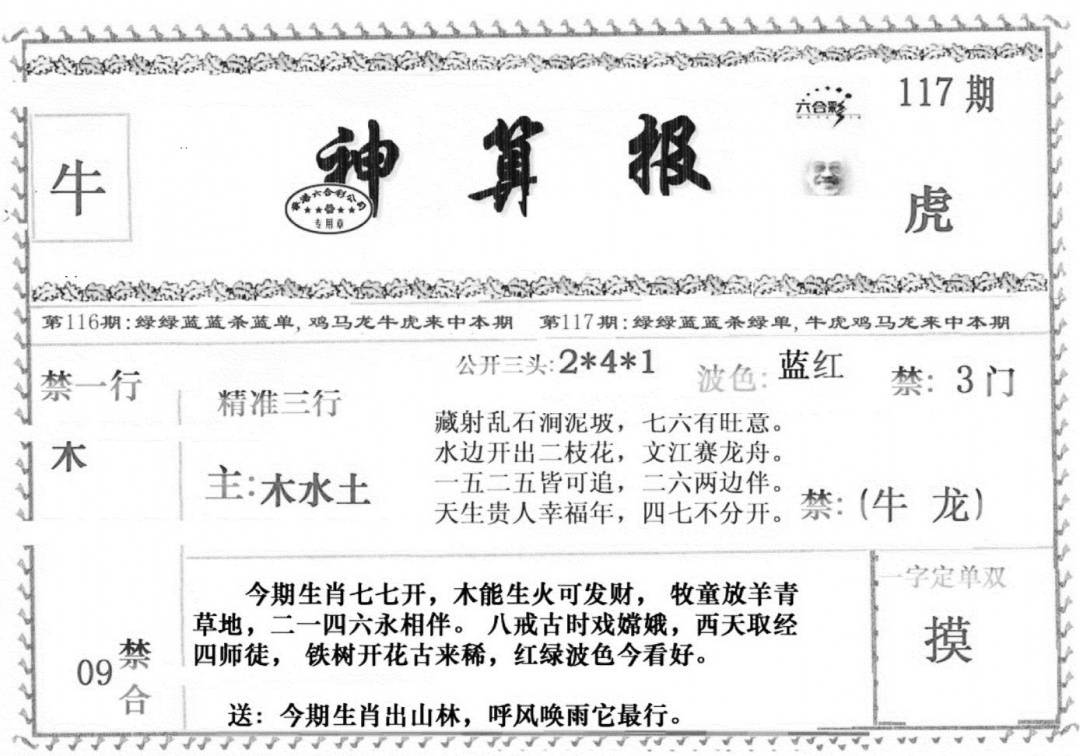 117期
六合彩
牛
神算报
香港六合彩公司
专用章
虎
第116期:绿绿蓝蓝杀蓝单,鸡马龙牛虎来中本期 第117期:绿绿蓝蓝杀绿单,牛虎鸡马龙来中本期
公开三头:2*4*1
波色:蓝红
禁:3门
禁一行
木
精准三行
主:木水土
藏射乱石涧泥坡,七六有旺意。
水边开出二枝花,文江赛龙舟。
一五二五皆可追,二六两边伴。
天生贵人幸福年,四七不分开。
禁:(牛 龙)
今期生肖七七开,木能生火可发财, 牧童放羊青
草地,二一四六永相伴。 八戒古时戏嫦娥,西天取经
四师徒, 铁树开花古来稀,红绿波色今看好。
送: 今期生肖出山林,呼风唤雨它最行。
09禁合
一字定单双
摸